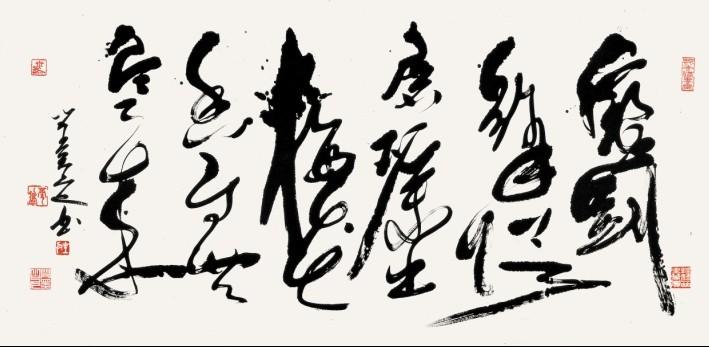 寶劍
鋒從
磨礪出
梅花
香自苦
寒來
書